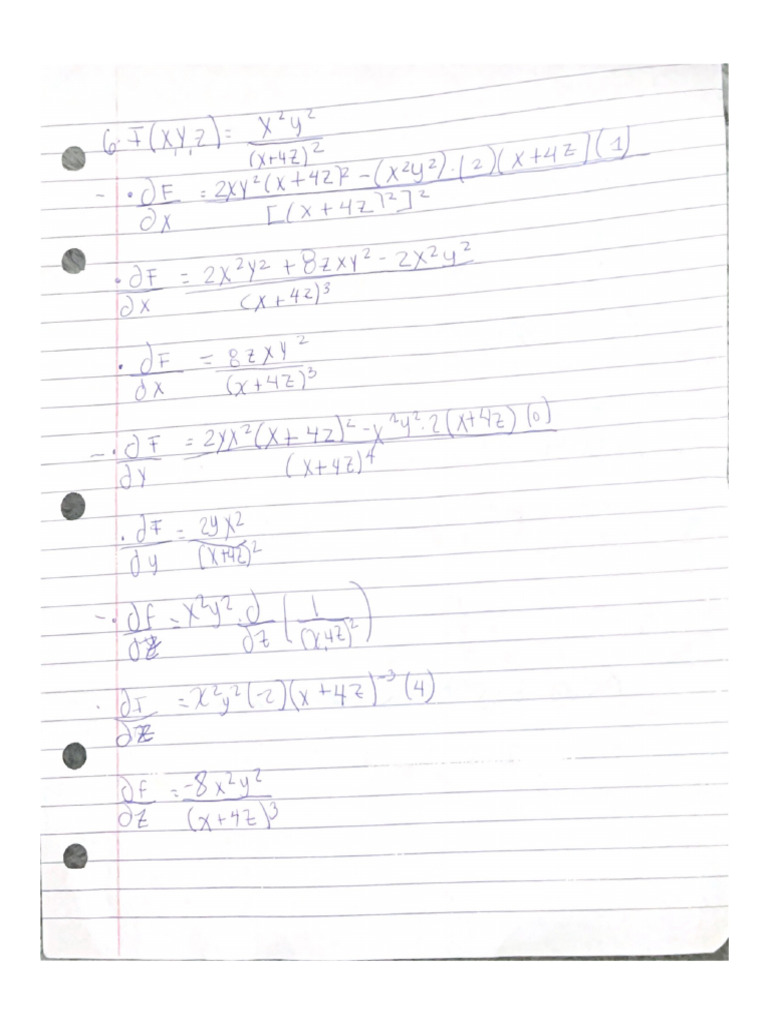 6. F(x,y,z) = x²y² / (x+4z)²
- • ∂F/∂x = 2xy²(x+4z)² - (x²y²)·(2)(x+4z)(1) / [(x+4z)²]²
• ∂F/∂x = 2x²y² + 8zxy² - 2x²y² / (x+4z)³
• ∂F/∂x = 8zxy² / (x+4z)³
- • ∂F/∂y = 2yx²(x+4z)² - x²y²·2(x+4z)(0) / (x+4z)⁴
• ∂F/∂y = 2yx² / (x+4z)²
- • ∂F/∂z = x²y²·∂/∂z (1/(x+4z)²)
• ∂F/∂z = x²y²(-2)(x+4z)⁻³(4)
∂F/∂z = -8x²y² / (x+4z)³